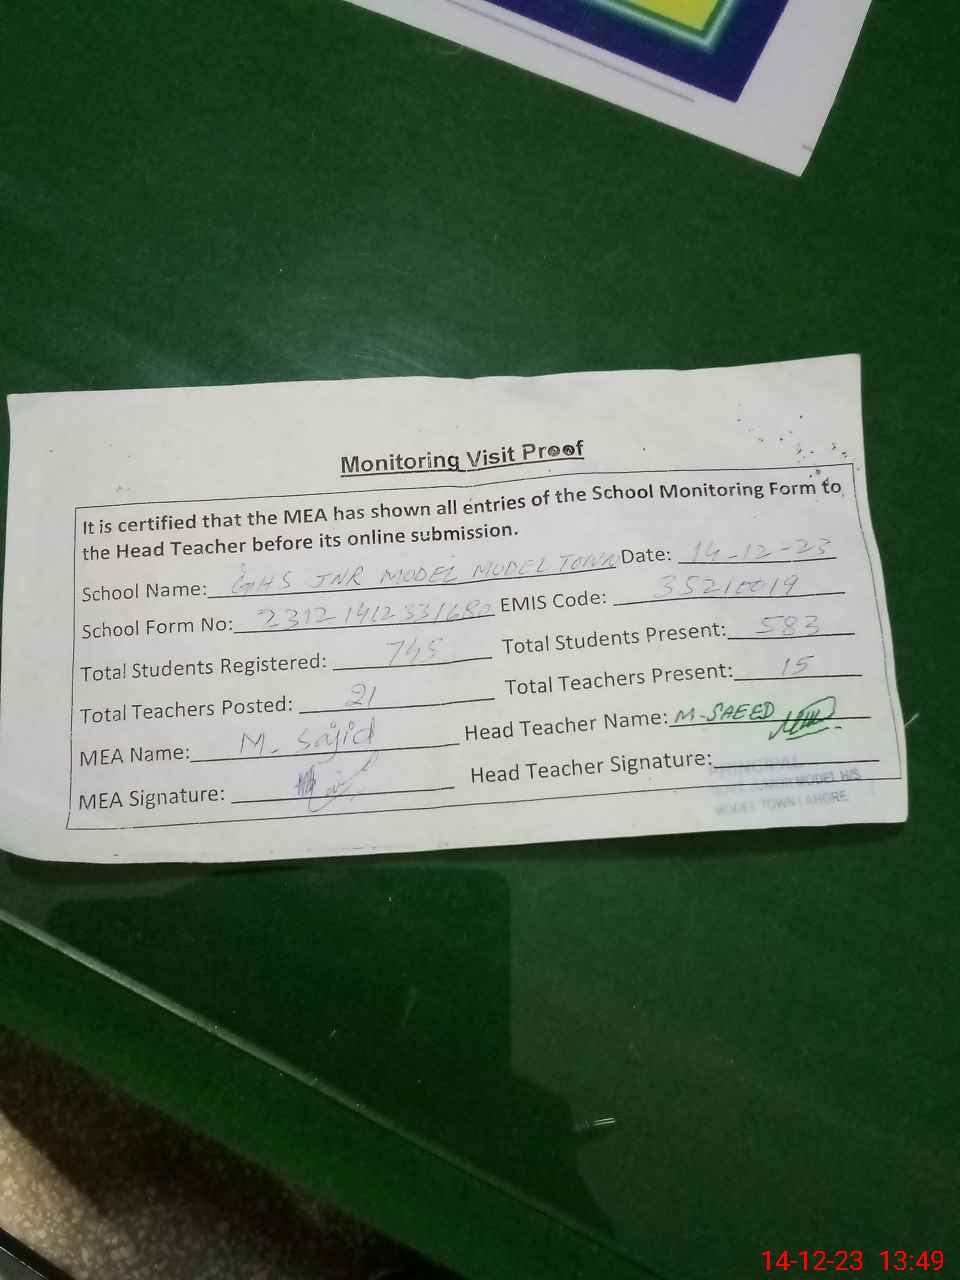 Monitoring Visit Proof
It is certified that the MEA has shown all entries of the School Monitoring Form to
the Head Teacher before its online submission.
School Name: GHS JNR MODEL MODEL TOWN Date: 14-12-23
School Form No: EMIS Code: 35210019
Total Students Registered: 745 Total Students Present: 583
Total Teachers Posted: 21 Total Teachers Present: 15
MEA Name: M. Sajid Head Teacher Name: M-SAEED
MEA Signature: Head Teacher Signature:
PRINCIPAL
JUNIOR MODEL H/S
MODEL TOWN LAHORE
14-12-23 13:49